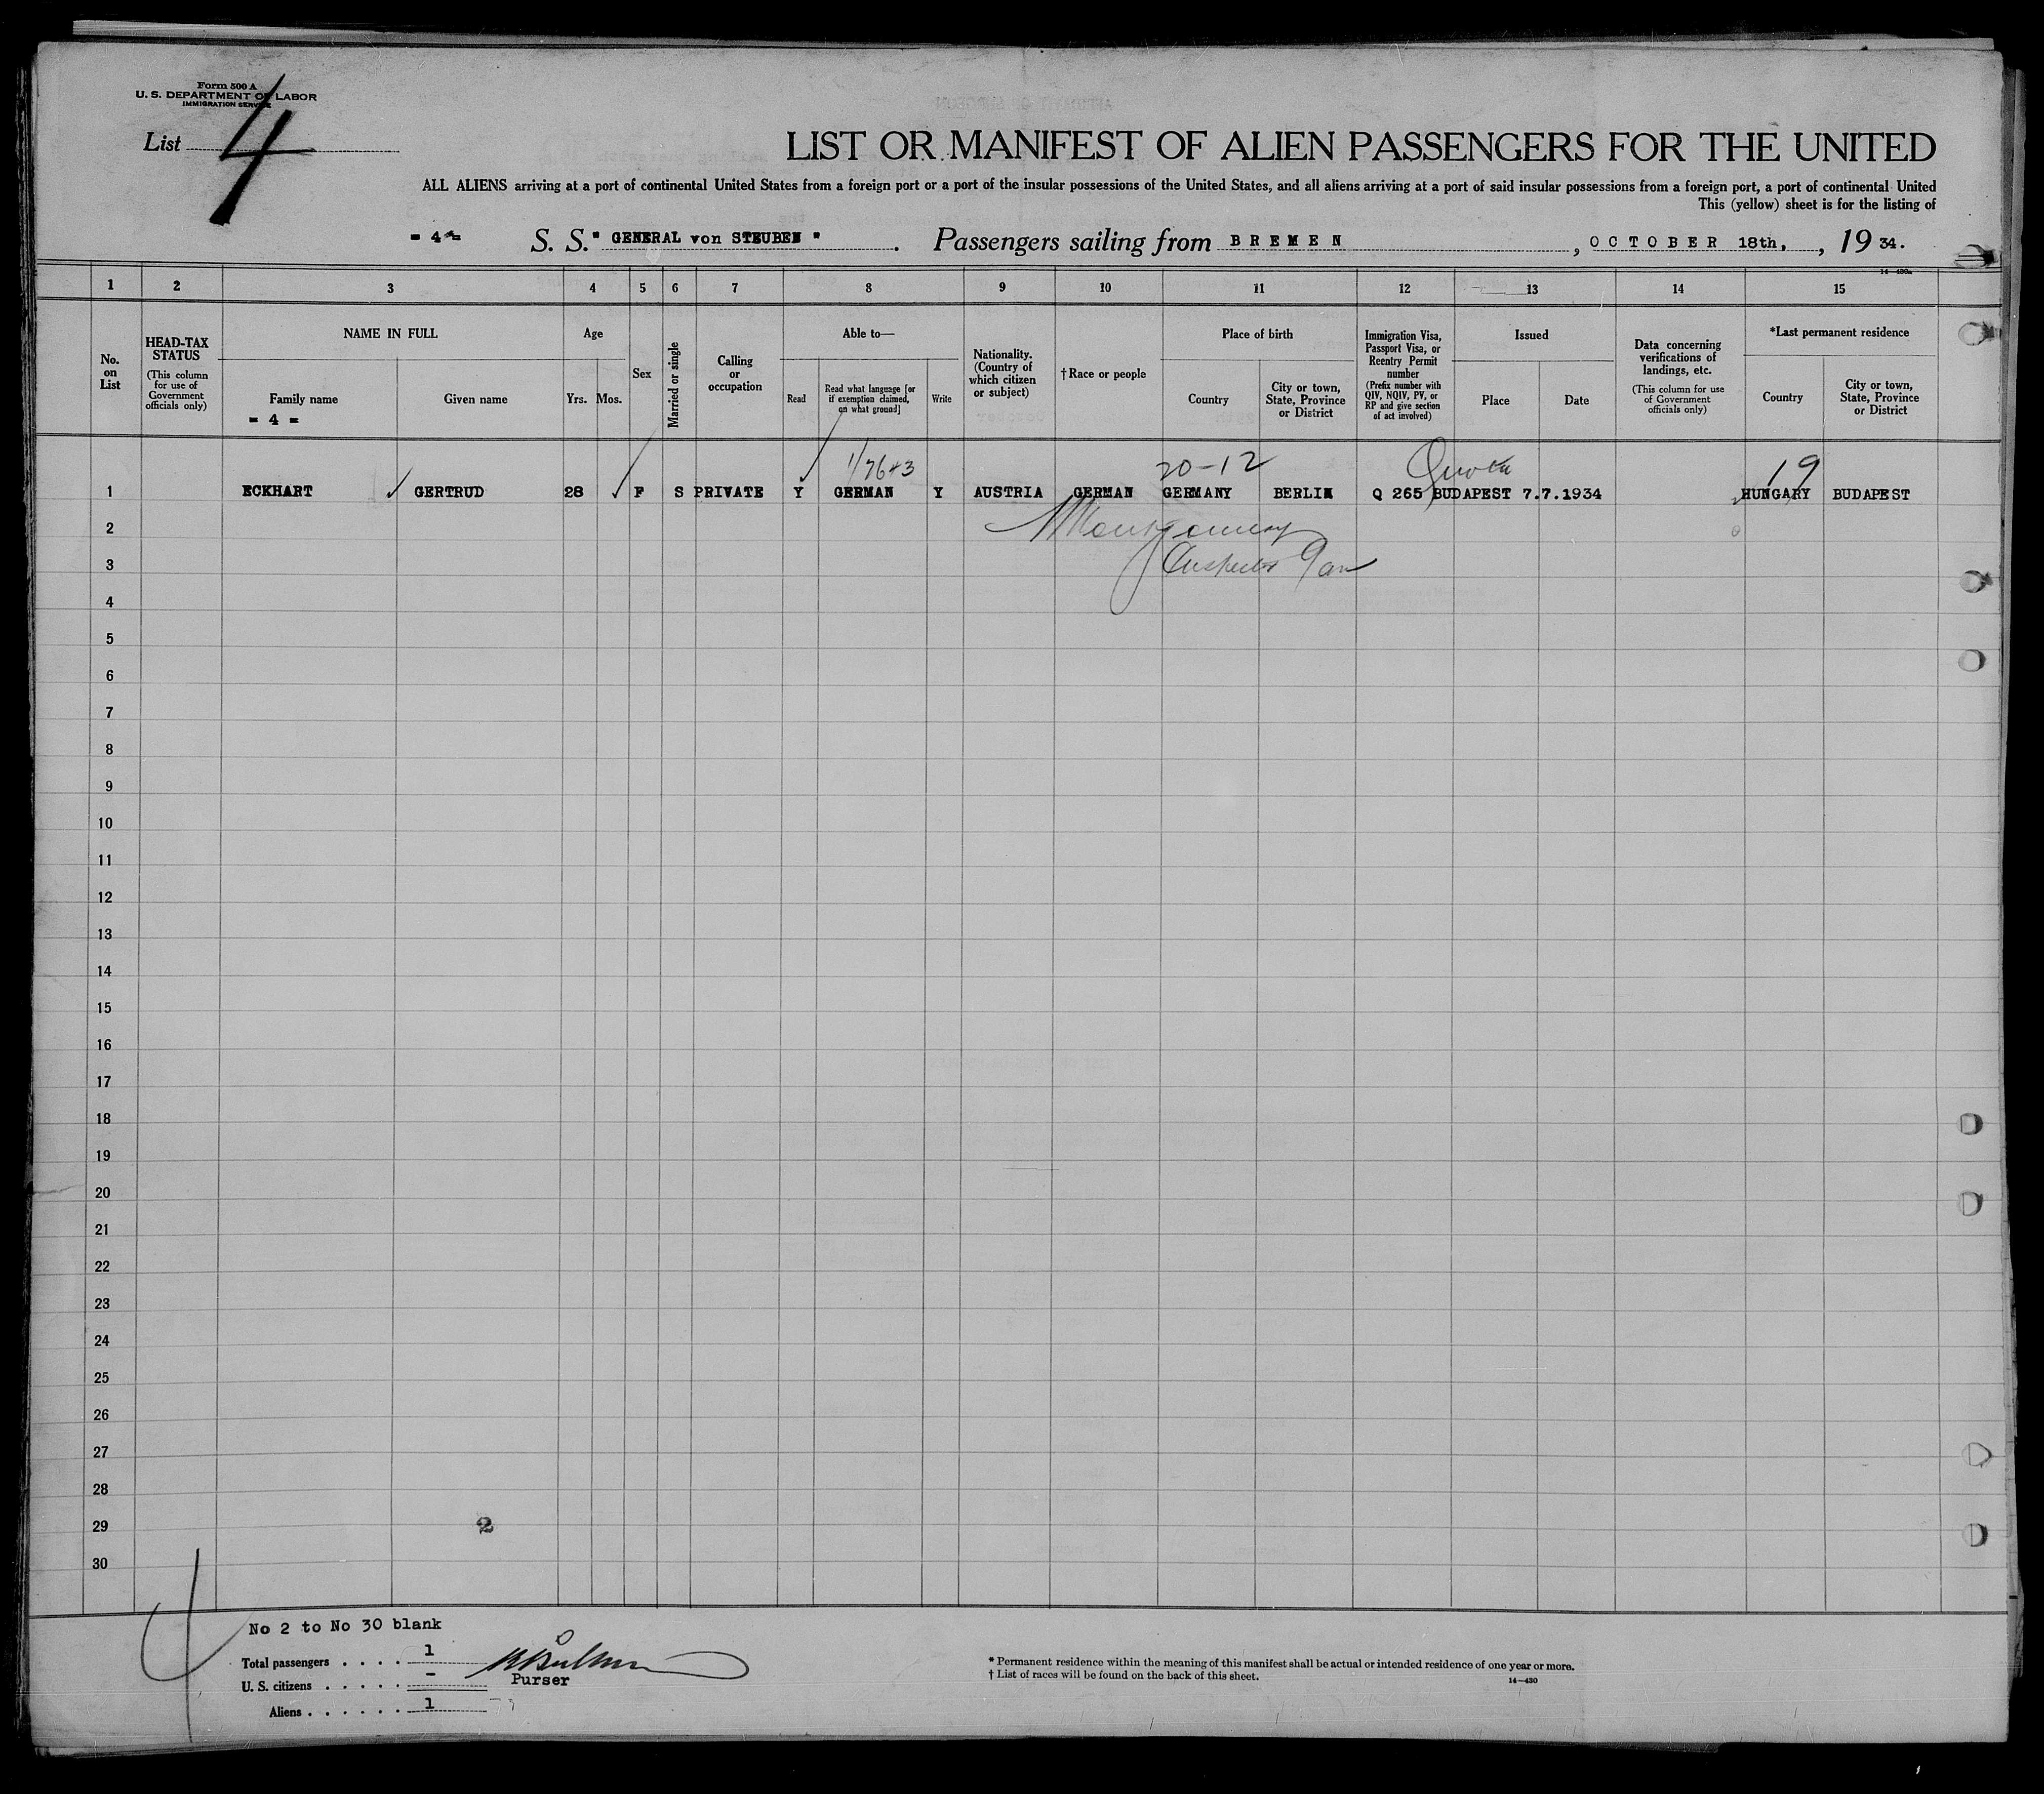 Form 500 A
U. S. DEPARTMENT OF LABOR
IMMIGRATION SERVICE
List 4
LIST OR MANIFEST OF ALIEN PASSENGERS FOR THE UNITED
ALL ALIENS arriving at a port of continental United States from a foreign port or a port of the insular possessions of the United States, and all aliens arriving at a port of said insular possessions from a foreign port, a port of continental United
This (yellow) sheet is for the listing of
= 4 = S. S. " GENERAL von STEUBEN " . Passengers sailing from B R E M E N , O C T O B E R 18th, , 19 34.
14—430a
1 2 3 4 5 6 7 8 9 10 11 12 13 14 15
No. on List
HEAD-TAX STATUS
(This column for use of Government officials only)
NAME IN FULL
Family name
= 4 =
Given name
Age
Yrs. Mos.
Sex
Married or single
Calling or occupation
Able to—
Read
Read what language [or if exemption claimed, on what ground]
Write
Nationality. (Country of which citizen or subject)
†Race or people
Place of birth
Country
City or town, State, Province or District
Immigration Visa, Passport Visa, or Reentry Permit number
(Prefix number with QIV, NQIV, PV, or RP and give section of act involved)
Issued
Place
Date
Data concerning verifications of landings, etc.
(This column for use of Government officials only)
*Last permanent residence
Country
City or town, State, Province or District
20-12 Quota 19
1 ECKHART GERTRUD 28 F S PRIVATE Y GERMAN Y AUSTRIA GERMAN GERMANY BERLIN Q 265 BUDAPEST 7.7.1934 HUNGARY BUDAPEST
Montgomery
2
3
4
5
6
7
8
9
10
11
12
13
14
15
16
17
18
19
20
21
22
23
24
25
26
27
28
29 2
30
4
No 2 to No 30 blank
Total passengers . . . . 1
U. S. citizens . . . . . –
Purser
Aliens . . . . . . 1
* Permanent residence within the meaning of this manifest shall be actual or intended residence of one year or more.
† List of races will be found on the back of this sheet.
14—430